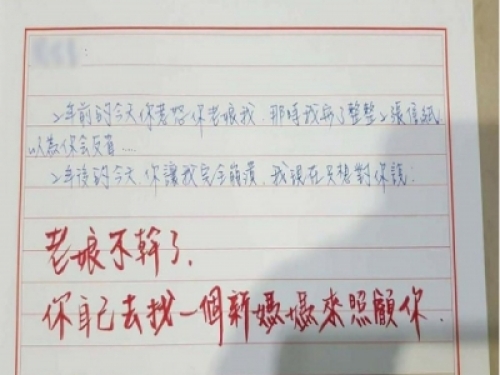 2年前的今天你惹怒你老娘我,那時我寫了整整2張信紙
以為你會反省....
2年後的今天,你讓我完全崩潰,我現在只想對你說:
老娘不幹了,
你自己去找一個新媽媽來照顧你.